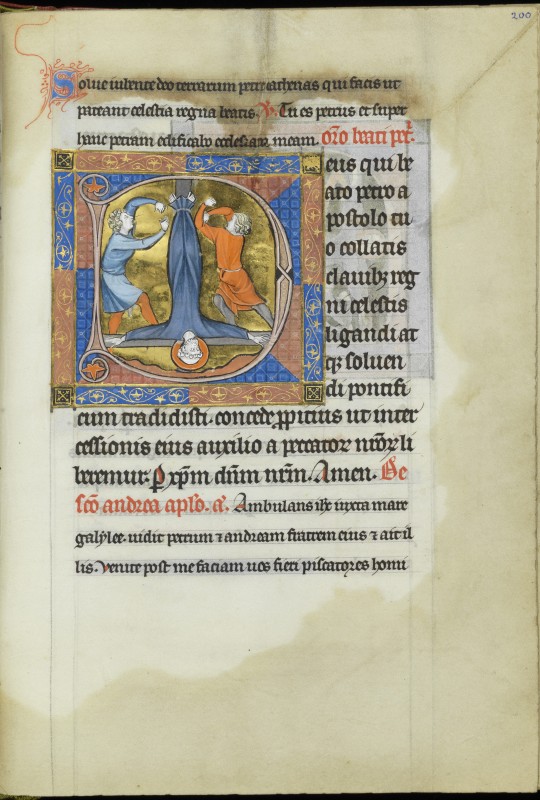 200
Solue iubente deo terrarum petre cathenas qui facis ut
pateant celestia regna beatis. V. Tu es petrus et super
hanc petram edificabo ecclesiam meam. Oro beati pet.
eus qui be
ato petro a
postolo tu
o collatis
clauibȝ reg
ni celestis
ligandi at
qȝ soluen
di pontifi
cium tradidisti. concede ppitius ut inter
cessionis eius auxilio a peccator nror li
beremur. P xpm dnm nrm. Amen. De
sco andrea aplo. a. Ambulans ihc iuxta mare
galylee. uidit petrum ⁊ andream fratrem eius ⁊ ait il
lis. Venite post me faciam uos fieri piscatores homi